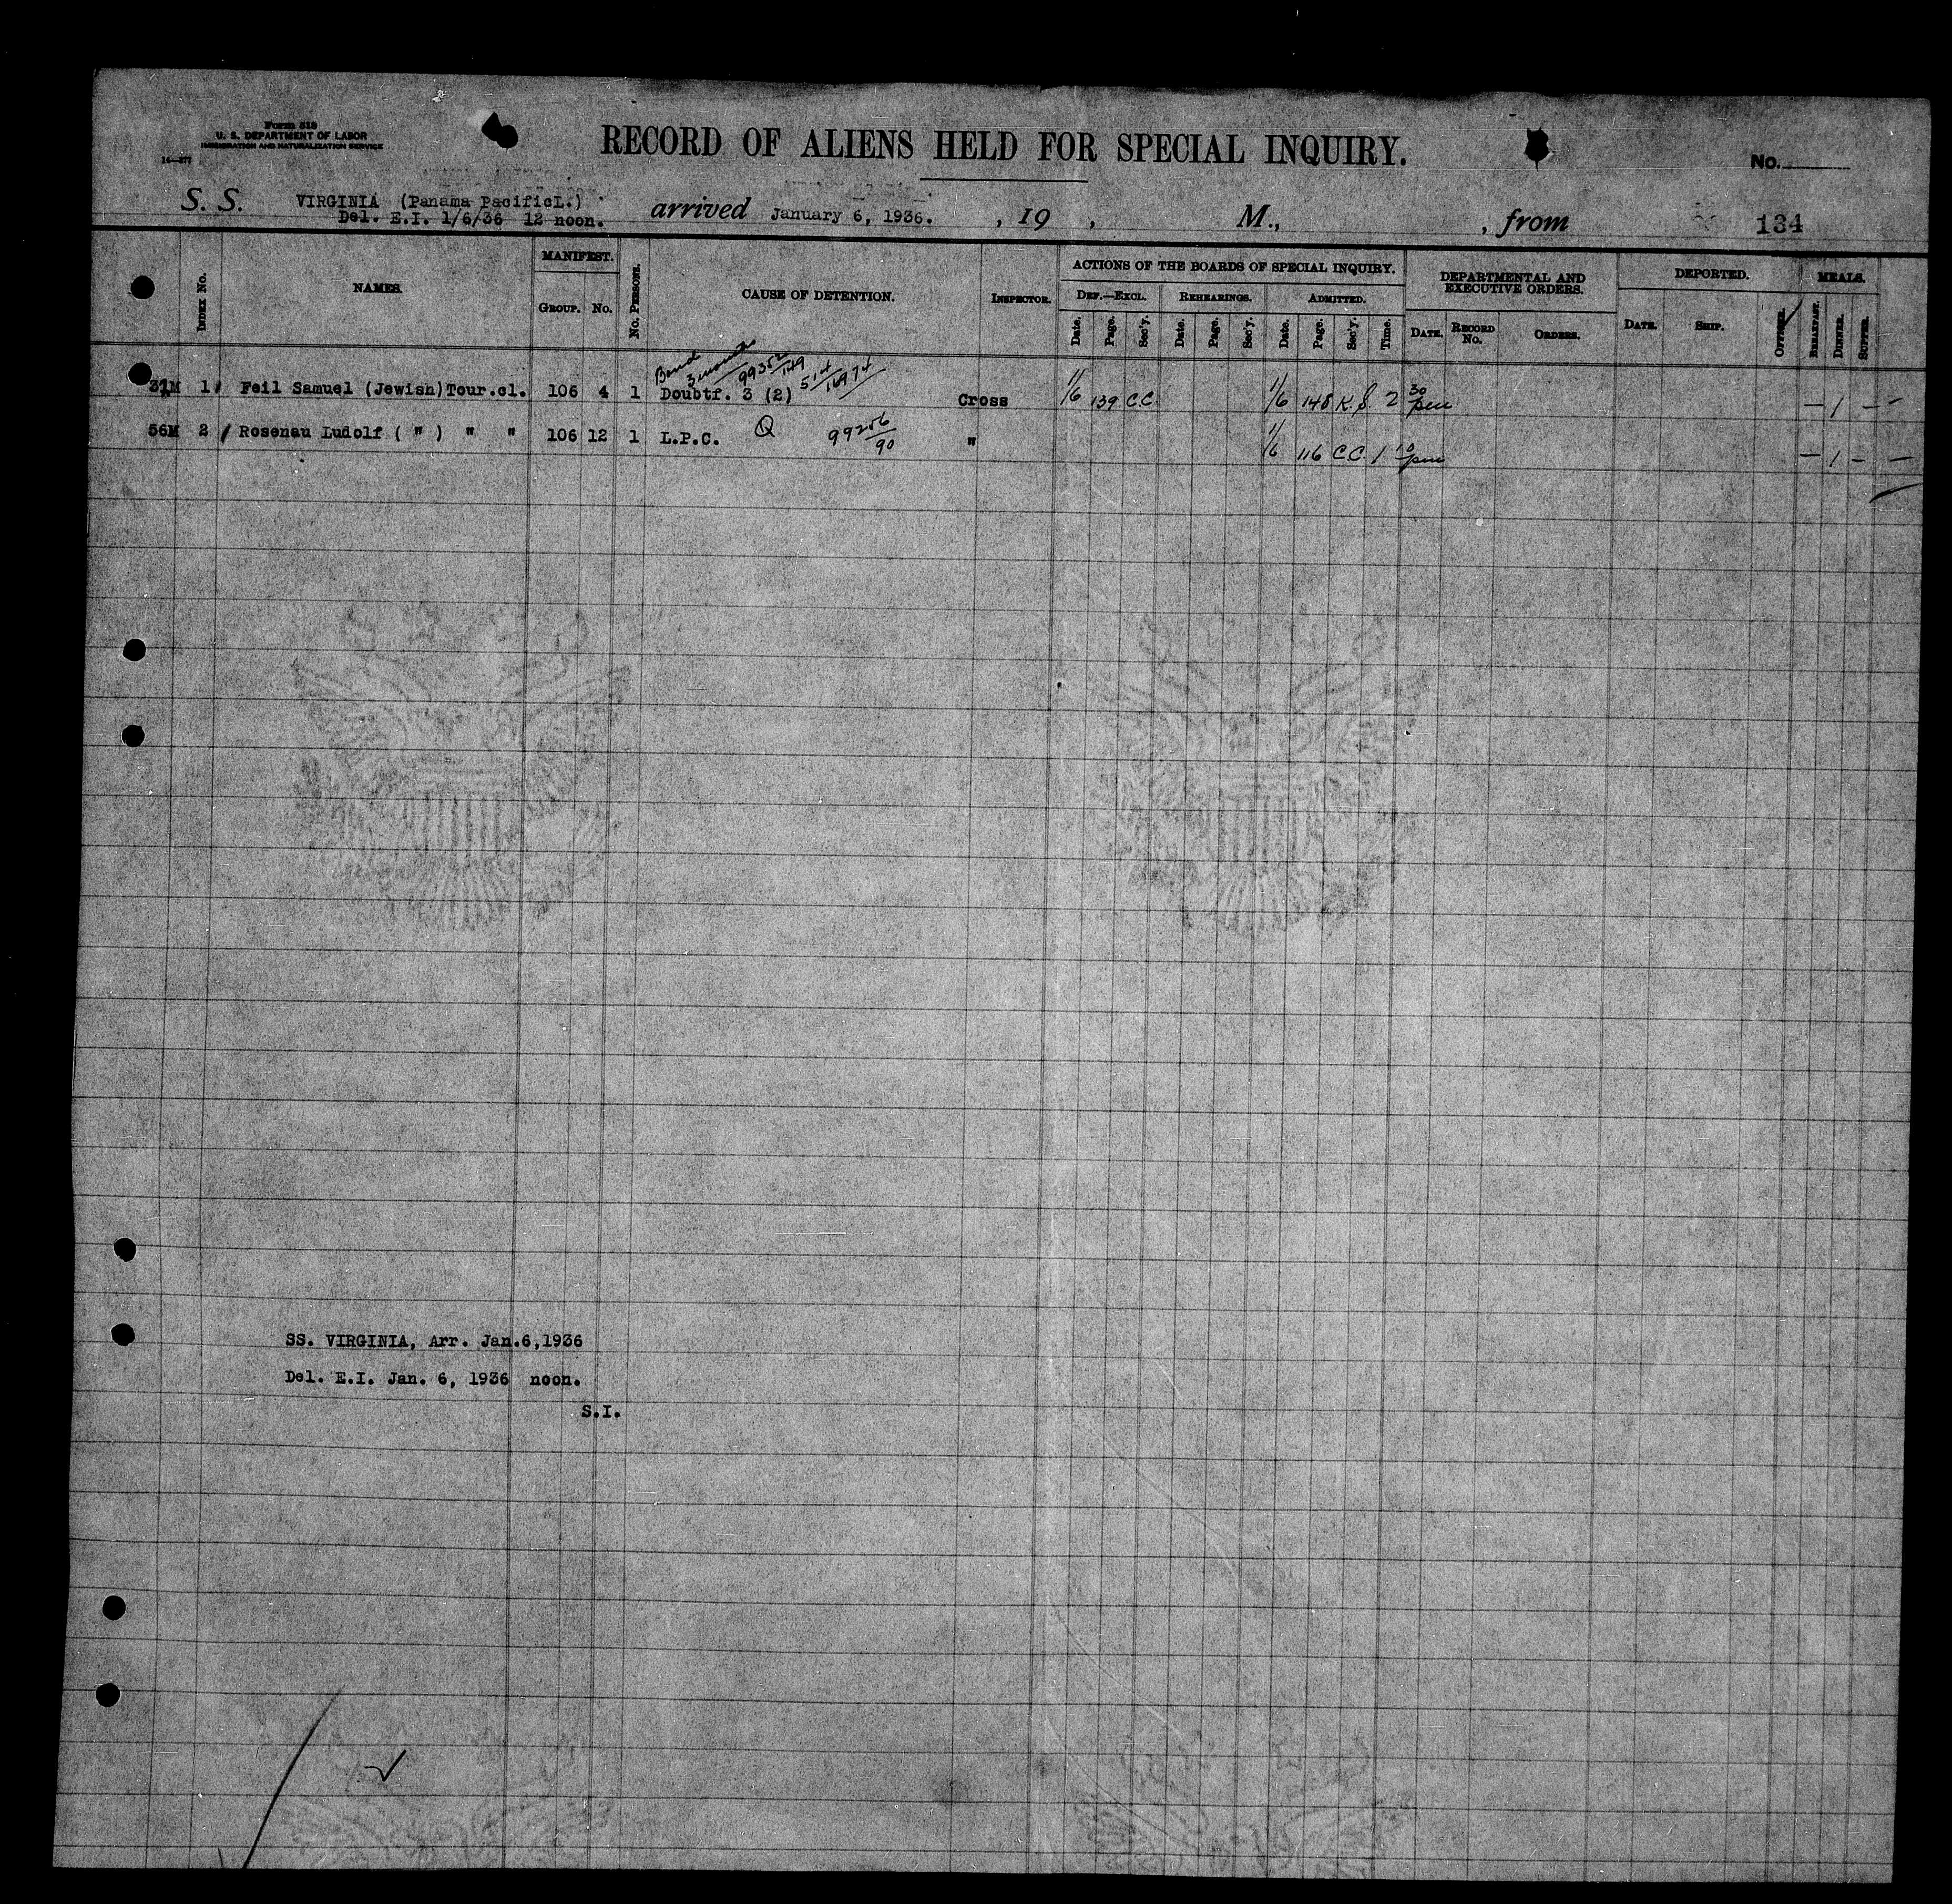 Form 519
U. S. DEPARTMENT OF LABOR
IMMIGRATION AND NATURALIZATION SERVICE
RECORD OF ALIENS HELD FOR SPECIAL INQUIRY.
No.
S. S. VIRGINIA (Panama PacificL.) arrived January 6, 1936. , 19 , M., , from 134
Del. E.I. 1/6/36 12 noon.
INDEX No. NAMES. MANIFEST. GROUP. No. No. PERSONS. CAUSE OF DETENTION. INSPECTOR. ACTIONS OF THE BOARDS OF SPECIAL INQUIRY. DEF.—EXCL. REHEARINGS. ADMITTED. DEPARTMENTAL AND EXECUTIVE ORDERS. DEPORTED. MEALS.
Date. Page. Sec'y. Date. Page. Sec'y. Date. Page. Sec'y. Time. DATE. RECORD No. ORDERS. DATE. SHIP. OFFICER. BREAKFAST. DINNER. SUPPER.
Bond
3 months 99352/149 514/16974
31M 1 Feil Samuel (Jewish) Tour.cl. 106 4 1 Doubtf. 3 (2) Cross 1/6 139 C.C. 1/6 148 K.S. 2 30 pm — 1 — —
56M 2 Rosenau Ludolf ( " ) " " 106 12 1 L.P.C. Q 99256/90 " 1/6 116 C.C. 1 10 pm — 1 — —
SS. VIRGINIA, Arr. Jan.6,1936
Del. E.I. Jan. 6, 1936 noon.
S.I.